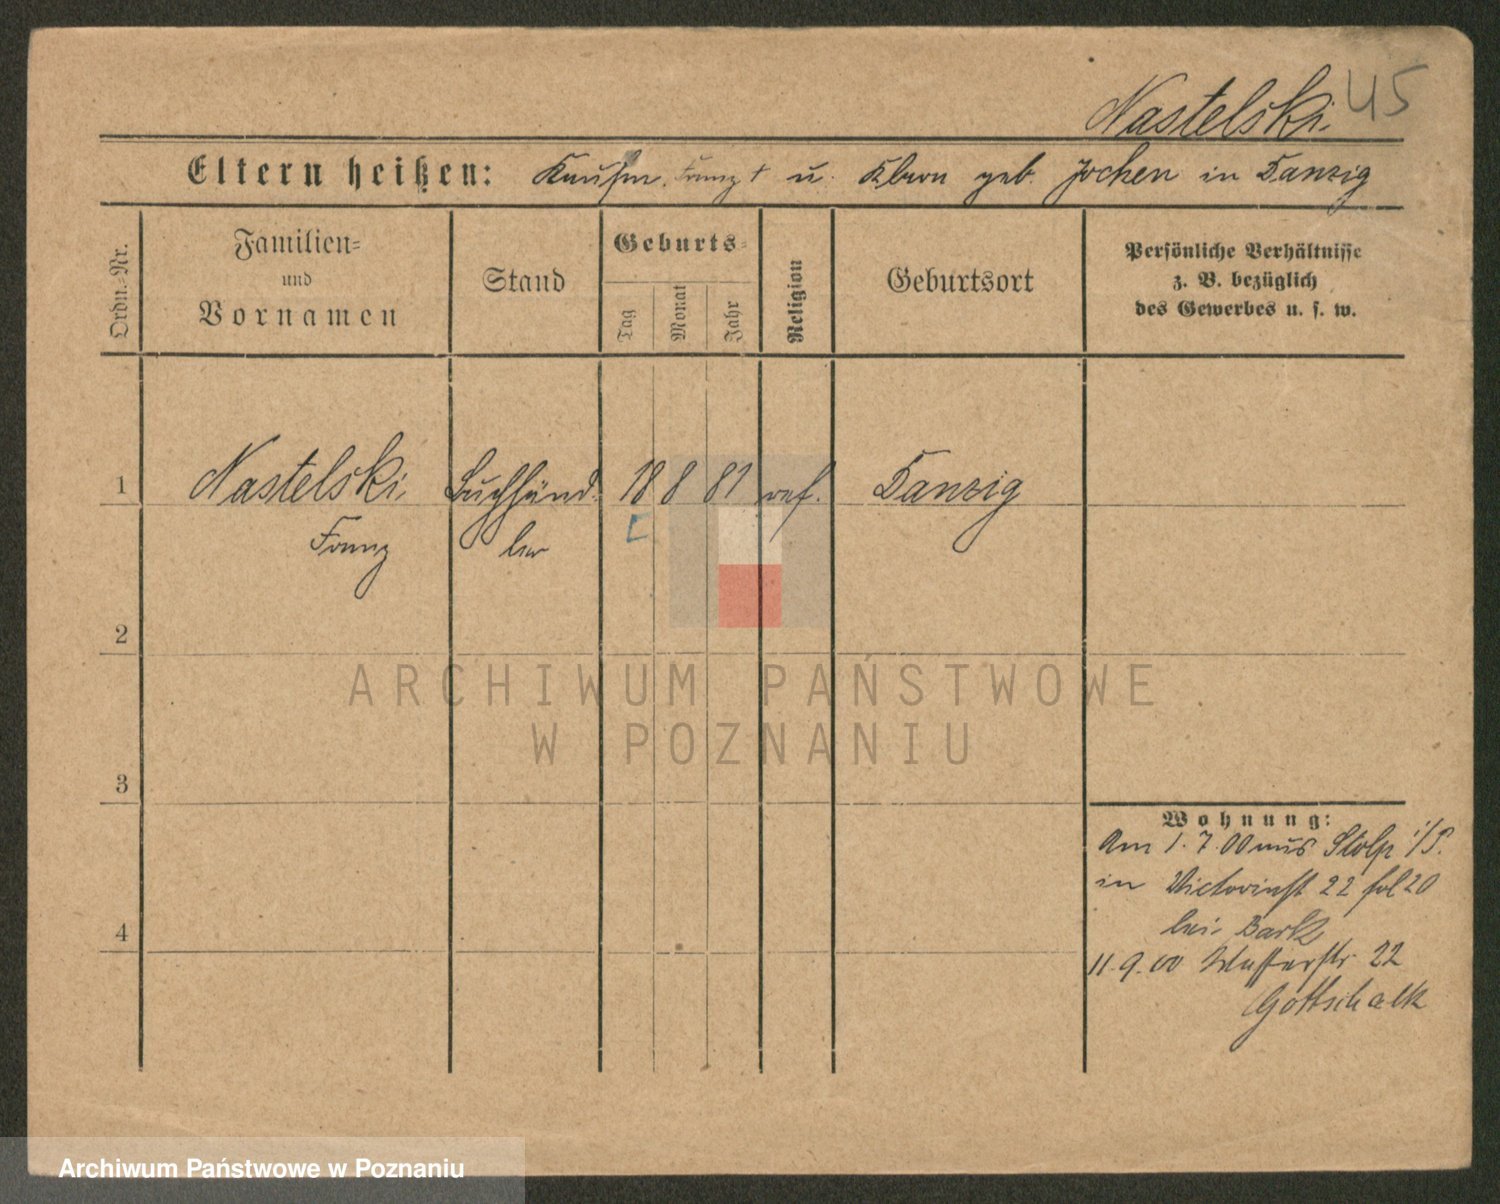 Nastelski 45
Eltern heißen: Kaufm. Franz † u. geb. Jochen in Danzig
Ordn.-Nr.
Familien-
und
Vornamen
Stand
Geburts-
Tag
Monat
Jahr
Religion
Geburtsort
Persönliche Verhältnisse
z. B. bezüglich
des Gewerbes u. s. w.
1 Nastelski Buchhänd- 18 8 81 ref. Danzig
Franz ler
2
3
4
Wohnung:
Am 1.7.00 aus Stolp i/P.
in Victoriast 22 fol 20
bei Bark
11.9.00 22
Gottschalk
ARCHIWUM PAŃSTWOWE
W POZNANIU
Archiwum Państwowe w Poznaniu